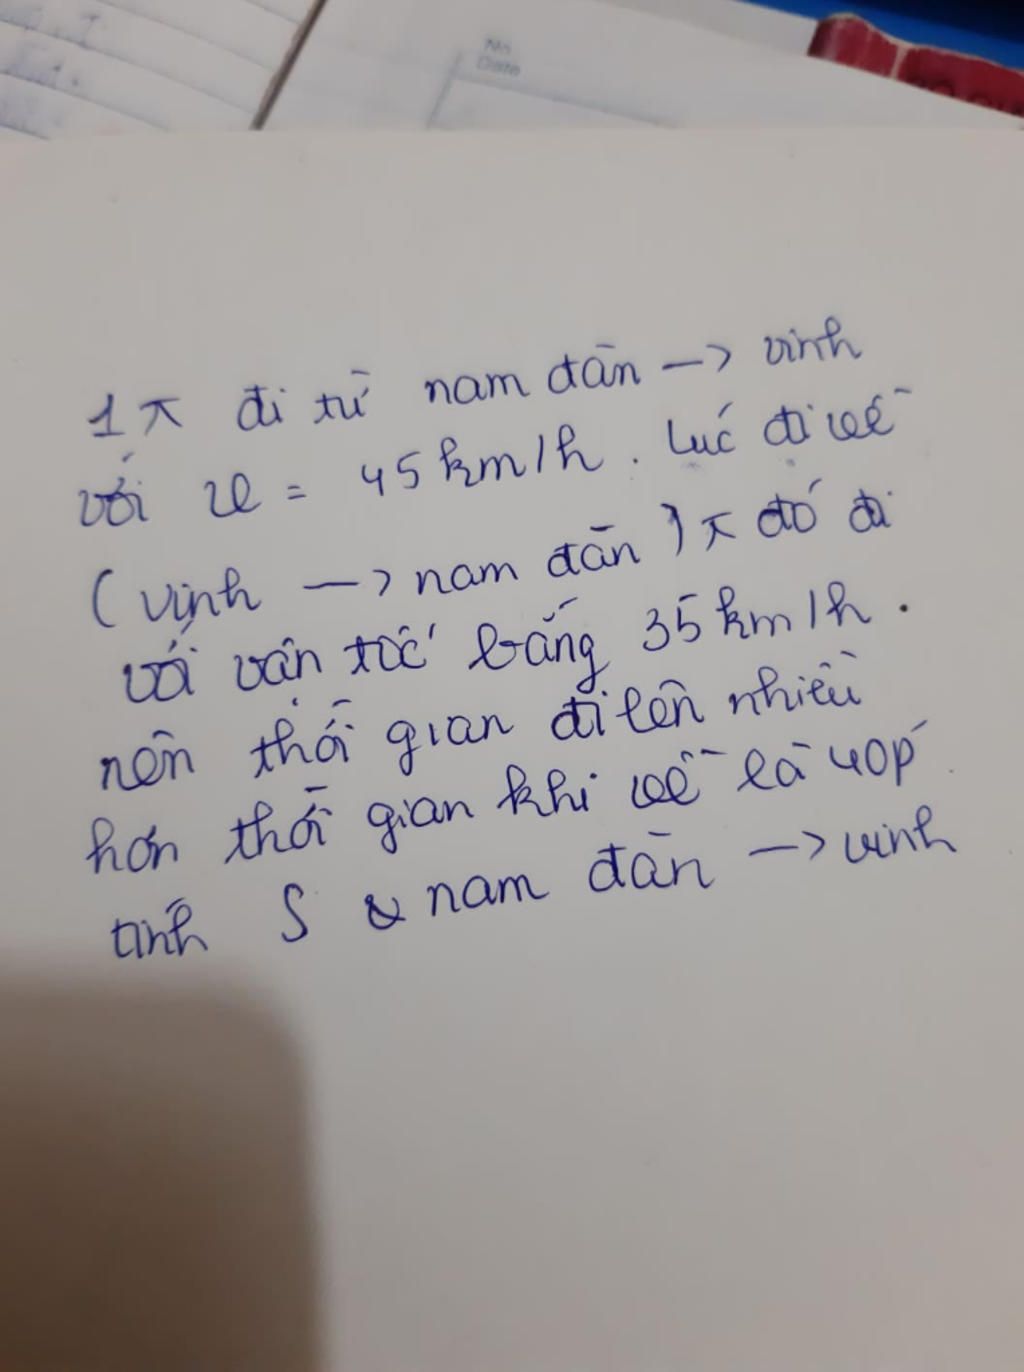 No
Date
1 π đi từ nam đàn → vinh
với v = 45 km/h. Lúc đi về
(vinh → nam đàn) π đó đi
với vận tốc bằng 35 km/h.
nên thời gian đi lên nhiều
hơn thời gian khi về là 40p
tính S & nam đàn → vinh